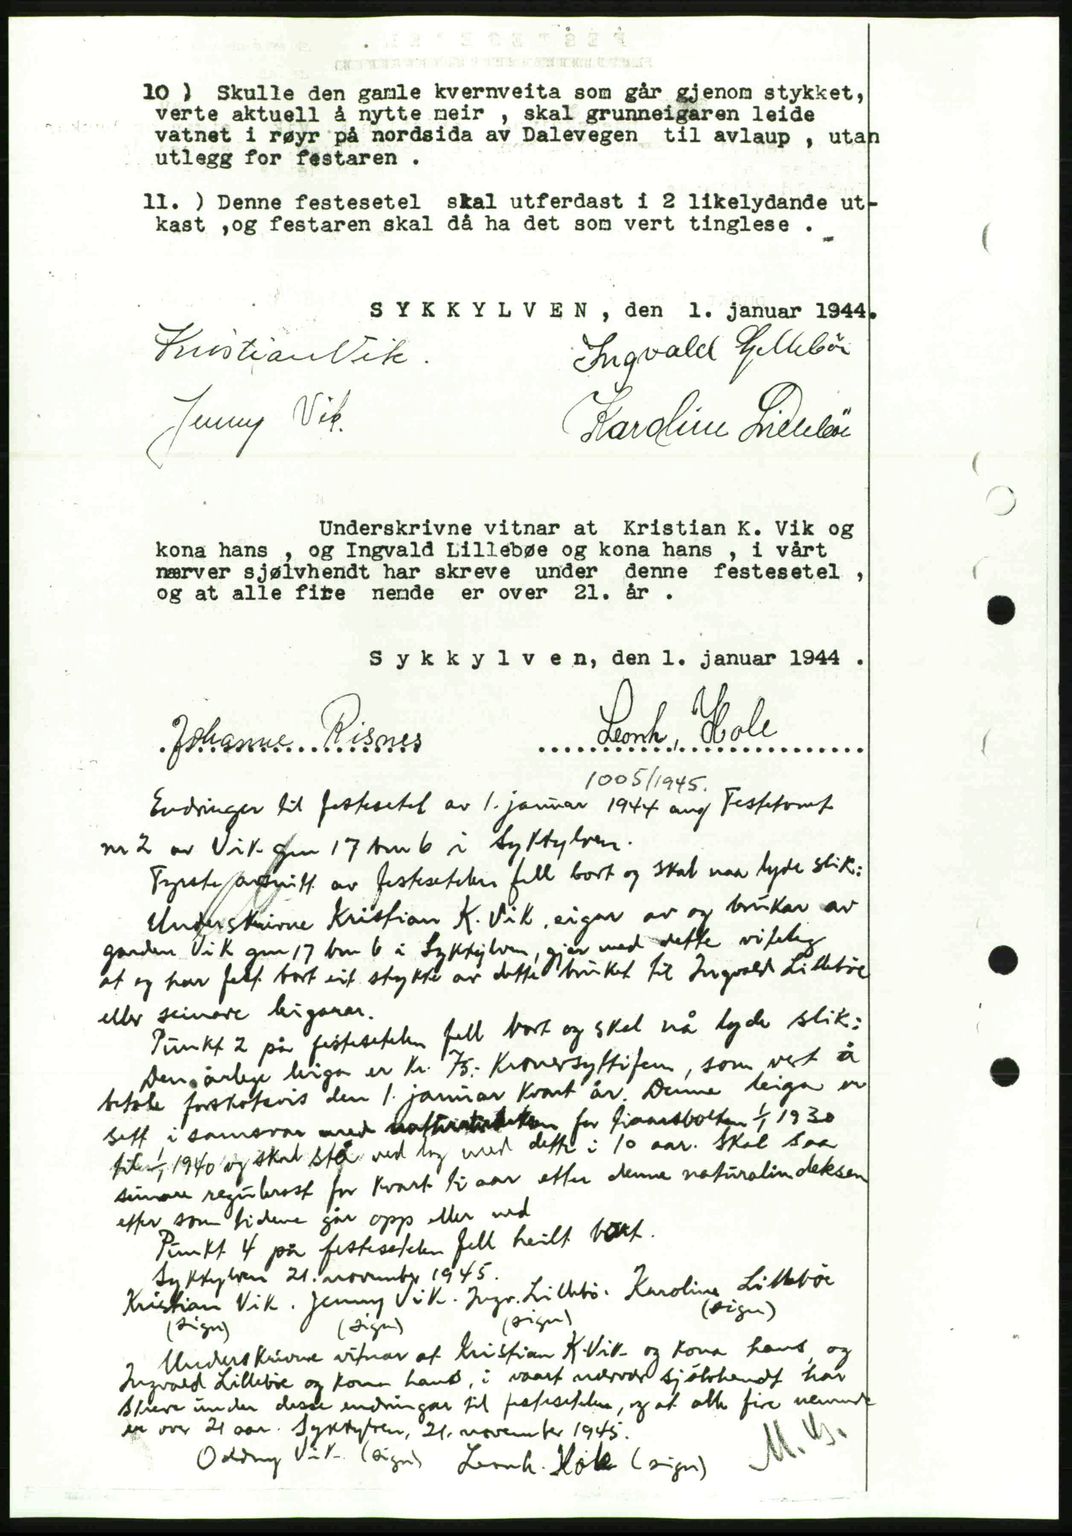 10 ) Skulle den gamle kvernveita som går gjenom stykket,
verte aktuell å nytte meir , skal grunneigaren leide
vatnet i røyr på nordsida av Dalevegen til avlaup , utan
utlegg for festaren .
11. ) Denne festesetel skal utferdast i 2 likelydande ut-
kast ,og festaren skal då ha det som vert tinglese .
S Y K K Y L V E N , den 1. januar 1944.
Kristian Vik. Ingvald Lillebøe
Jenny Vik. Karoline Lillebøe
Underskrivne vitnar at Kristian K. Vik og
kona hans , og Ingvald Lillebøe og kona hans , i vårt
nærver sjølvhendt har skreve under denne festesetel ,
og at alle fire nemde er over 21. år .
S y k k y l v e n, den 1. januar 1944 .
Johanne Risnes Leonh. Hole
1005/1945.
Endringer til festesetel av 1. januar 1944 ang Festetomt
nr 2 av Vik gnr 17 bnr 6 i Sykkylven.
Fyrste avsnitt av festesetelen fell bort og skal naa lyde slik:
Underskrivne Kristian K. Vik, eigar av og brukar av
garden Vik gnr 17 bnr 6 i Sykkylven, gjer med dette viteleg
at eg har fest bort eit stykke av dette bruket til Ingvald Lillebøe
eller seinare leigarar.
Punkt 2 på festesetelen fell bort og skal nå lyde slik:
Den årlege leiga er kr. 75,- kronersyttifem, som vert å
betale forskotsvis den 1. januar kvart år. Denne leiga er
sett i samsvar med naturalindeksen for tiaarsbolken 1/1 1930
til 1/1 1940 og skal stå ved lag med dette i 10 aar. Skal saa
seinare regulerast for kvart ti aar etter denne naturalindeksen
etter som tidene går opp eller ned
Punkt 4 på festesetelen fell heilt bort.
Sykkylven 21. november 1945.
Kristian Vik. Jenny Vik. Ingv. Lillebø. Karoline Lillebøe
(sign) (sign) (sign) (sign)
Underskrivne vitnar at Kristian K. Vik og kona hans, og
Ingvald Lillebøe og kona hans, i vaart nærvær sjølvhendt har
skreve under desse endringar til festesetelen, og at alle fire nemnde
er over 21 aar. Sykkylven, 21. november 1945.
Oddny Vik (sign) Leonh. Hole (sign)